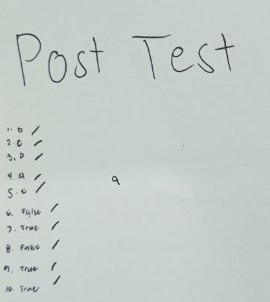 Post Test
1. b /
2. c /
3. D /
4. a /
5. c /
6. False /
7. True /
8. False /
9. True /
10. True /
9